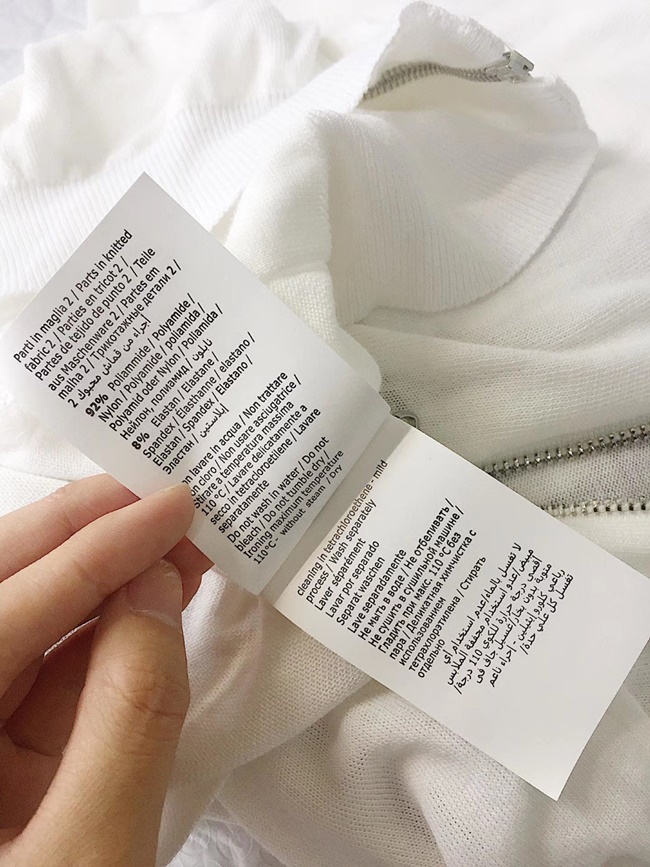 Parti in maglia 2 / Parts in knitted
fabric 2 / Parties en tricot 2 /
Partes de tejido de punto 2 / Teile
aus Maschenware 2 / Partes em
malha 2 / Трикотажные детали 2 /
اجزاء من قماش محبوك 2
92% Poliammide / Polyamide /
Nylon / Polyamide / poliamida /
Polyamid oder Nylon / Poliamida /
Нейлон, полиамид / نايلون
8% Elastan / Elastane /
Spandex / Elasthanne / elastano /
Elastan / Spandex / Elastano /
Эластан / إيلاستين
lavare in acqua / Non trattare
cloro / Non usare asciugatrice /
Stirare a temperatura massima
110 °C / Lavare delicatamente a
secco in tetracloroetilene / Lavare
separatamente
Do not wash in water / Do not
bleach / Do not tumble dry /
Ironing maximum temperature
110°C - without steam / Dry
cleaning in tetrachloroethene - mild
process / Wash separately
Laver séparément
Lavar por separado
Separat waschen
Lave separadamente
Не мыть в воде / Не отбеливать /
Не сушить в сушильной машине /
Гладить при макс. 110 °C без
пара / Деликатная химчистка с
использованием
тетрахлорэтилена / Стирать
отдельно
لا تغسل بالماء/عدم استخدام أي
مبيض/عدم استخدام مجففة الملابس
أقصى درجة حرارة للكوي 110 درجة/
مئوية بدون بخار/غسيل جاف في
رباعي كلورو إيثيلين - إجراء ناعم
تغسل كل على حدة/